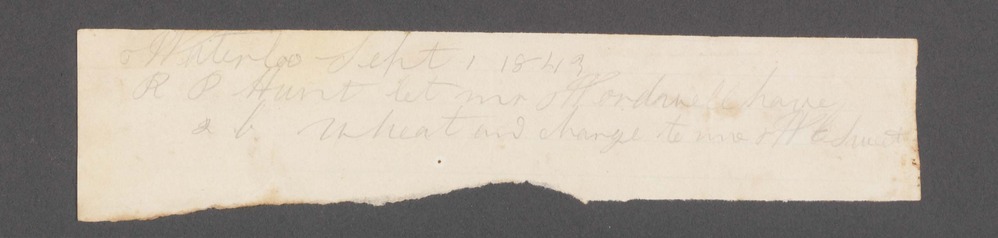 Waterloo Sept 1 1843
R P Hunt let mr Wordwell have
2 b. wheat and charge to me W Sweet